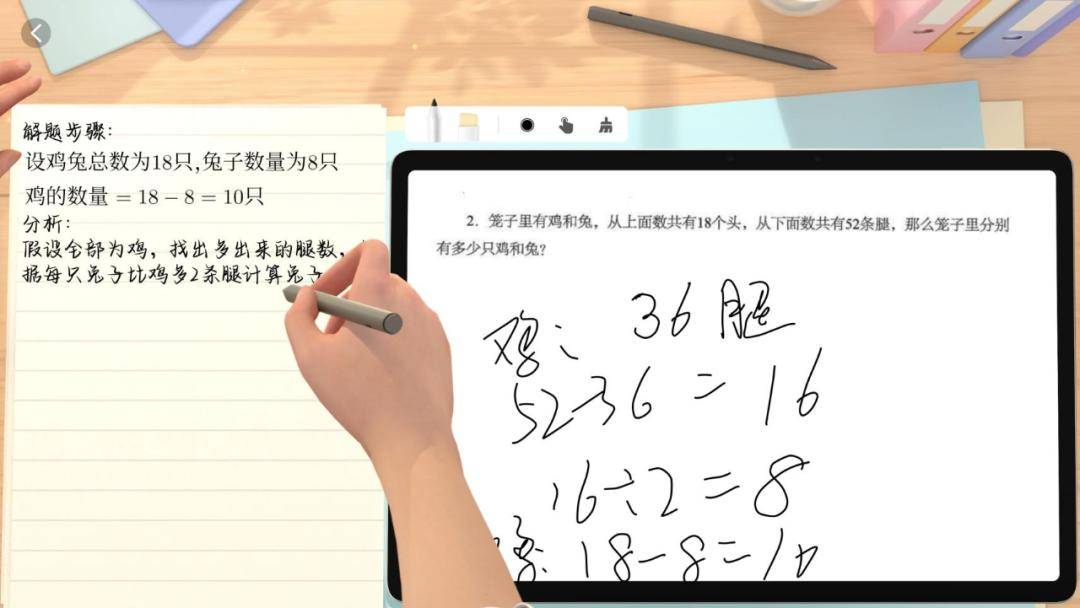 解题步骤：
设鸡兔总数为18只,兔子数量为8只
鸡的数量 = 18 − 8 = 10只
分析：
假设全部为鸡，找出多出来的腿数，
据每只兔子比鸡多2条腿计算兔子
2. 笼子里有鸡和兔，从上面数共有18个头，从下面数共有52条腿，那么笼子里分别
有多少只鸡和兔?
鸡： 36腿
52-36 = 16
16÷2=8
18-8=10